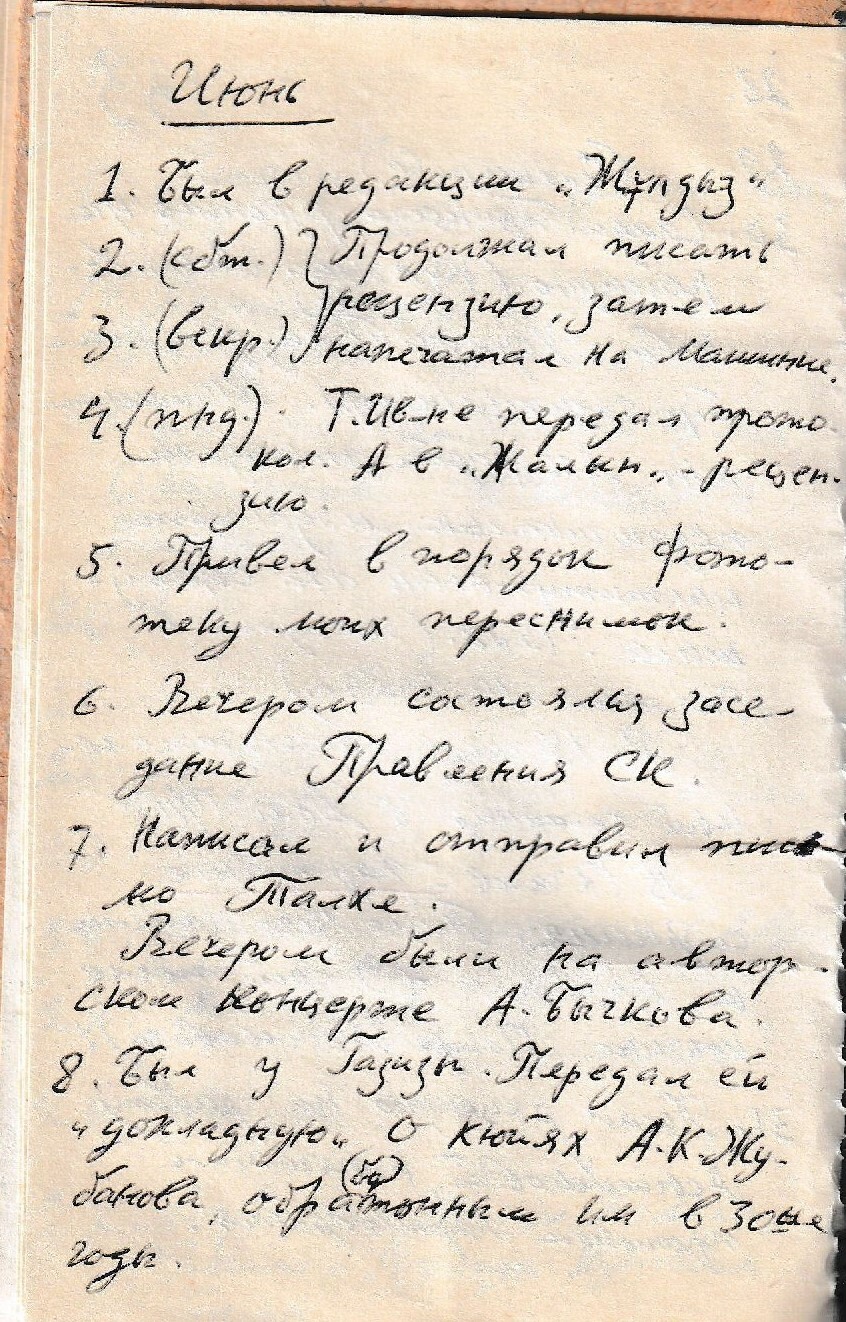 Июнь
1. Был в редакции „Жұлдыз"
2. (сбт.) } Продолжал писать
рецензию, затем
3. (вскр.) напечатал на машинке.
4. (пнд.). Т.Ив-не передал прото-
кол. А в „Жалын„ - рецен-
зию.
5. Привел в порядок фото-
теку моих переснимок.
6. Вечером состоялся засе-
дание Правления СК.
7. Написал и отправил пись-
мо Талхе.
Вечером были на автор-
ском концерте А. Бычкова.
8. Был у Газизы. Передал ей
„докладную„ о кюйях А.К.Жу-
банова, обра(бо)тонным им в 30ые
годы.